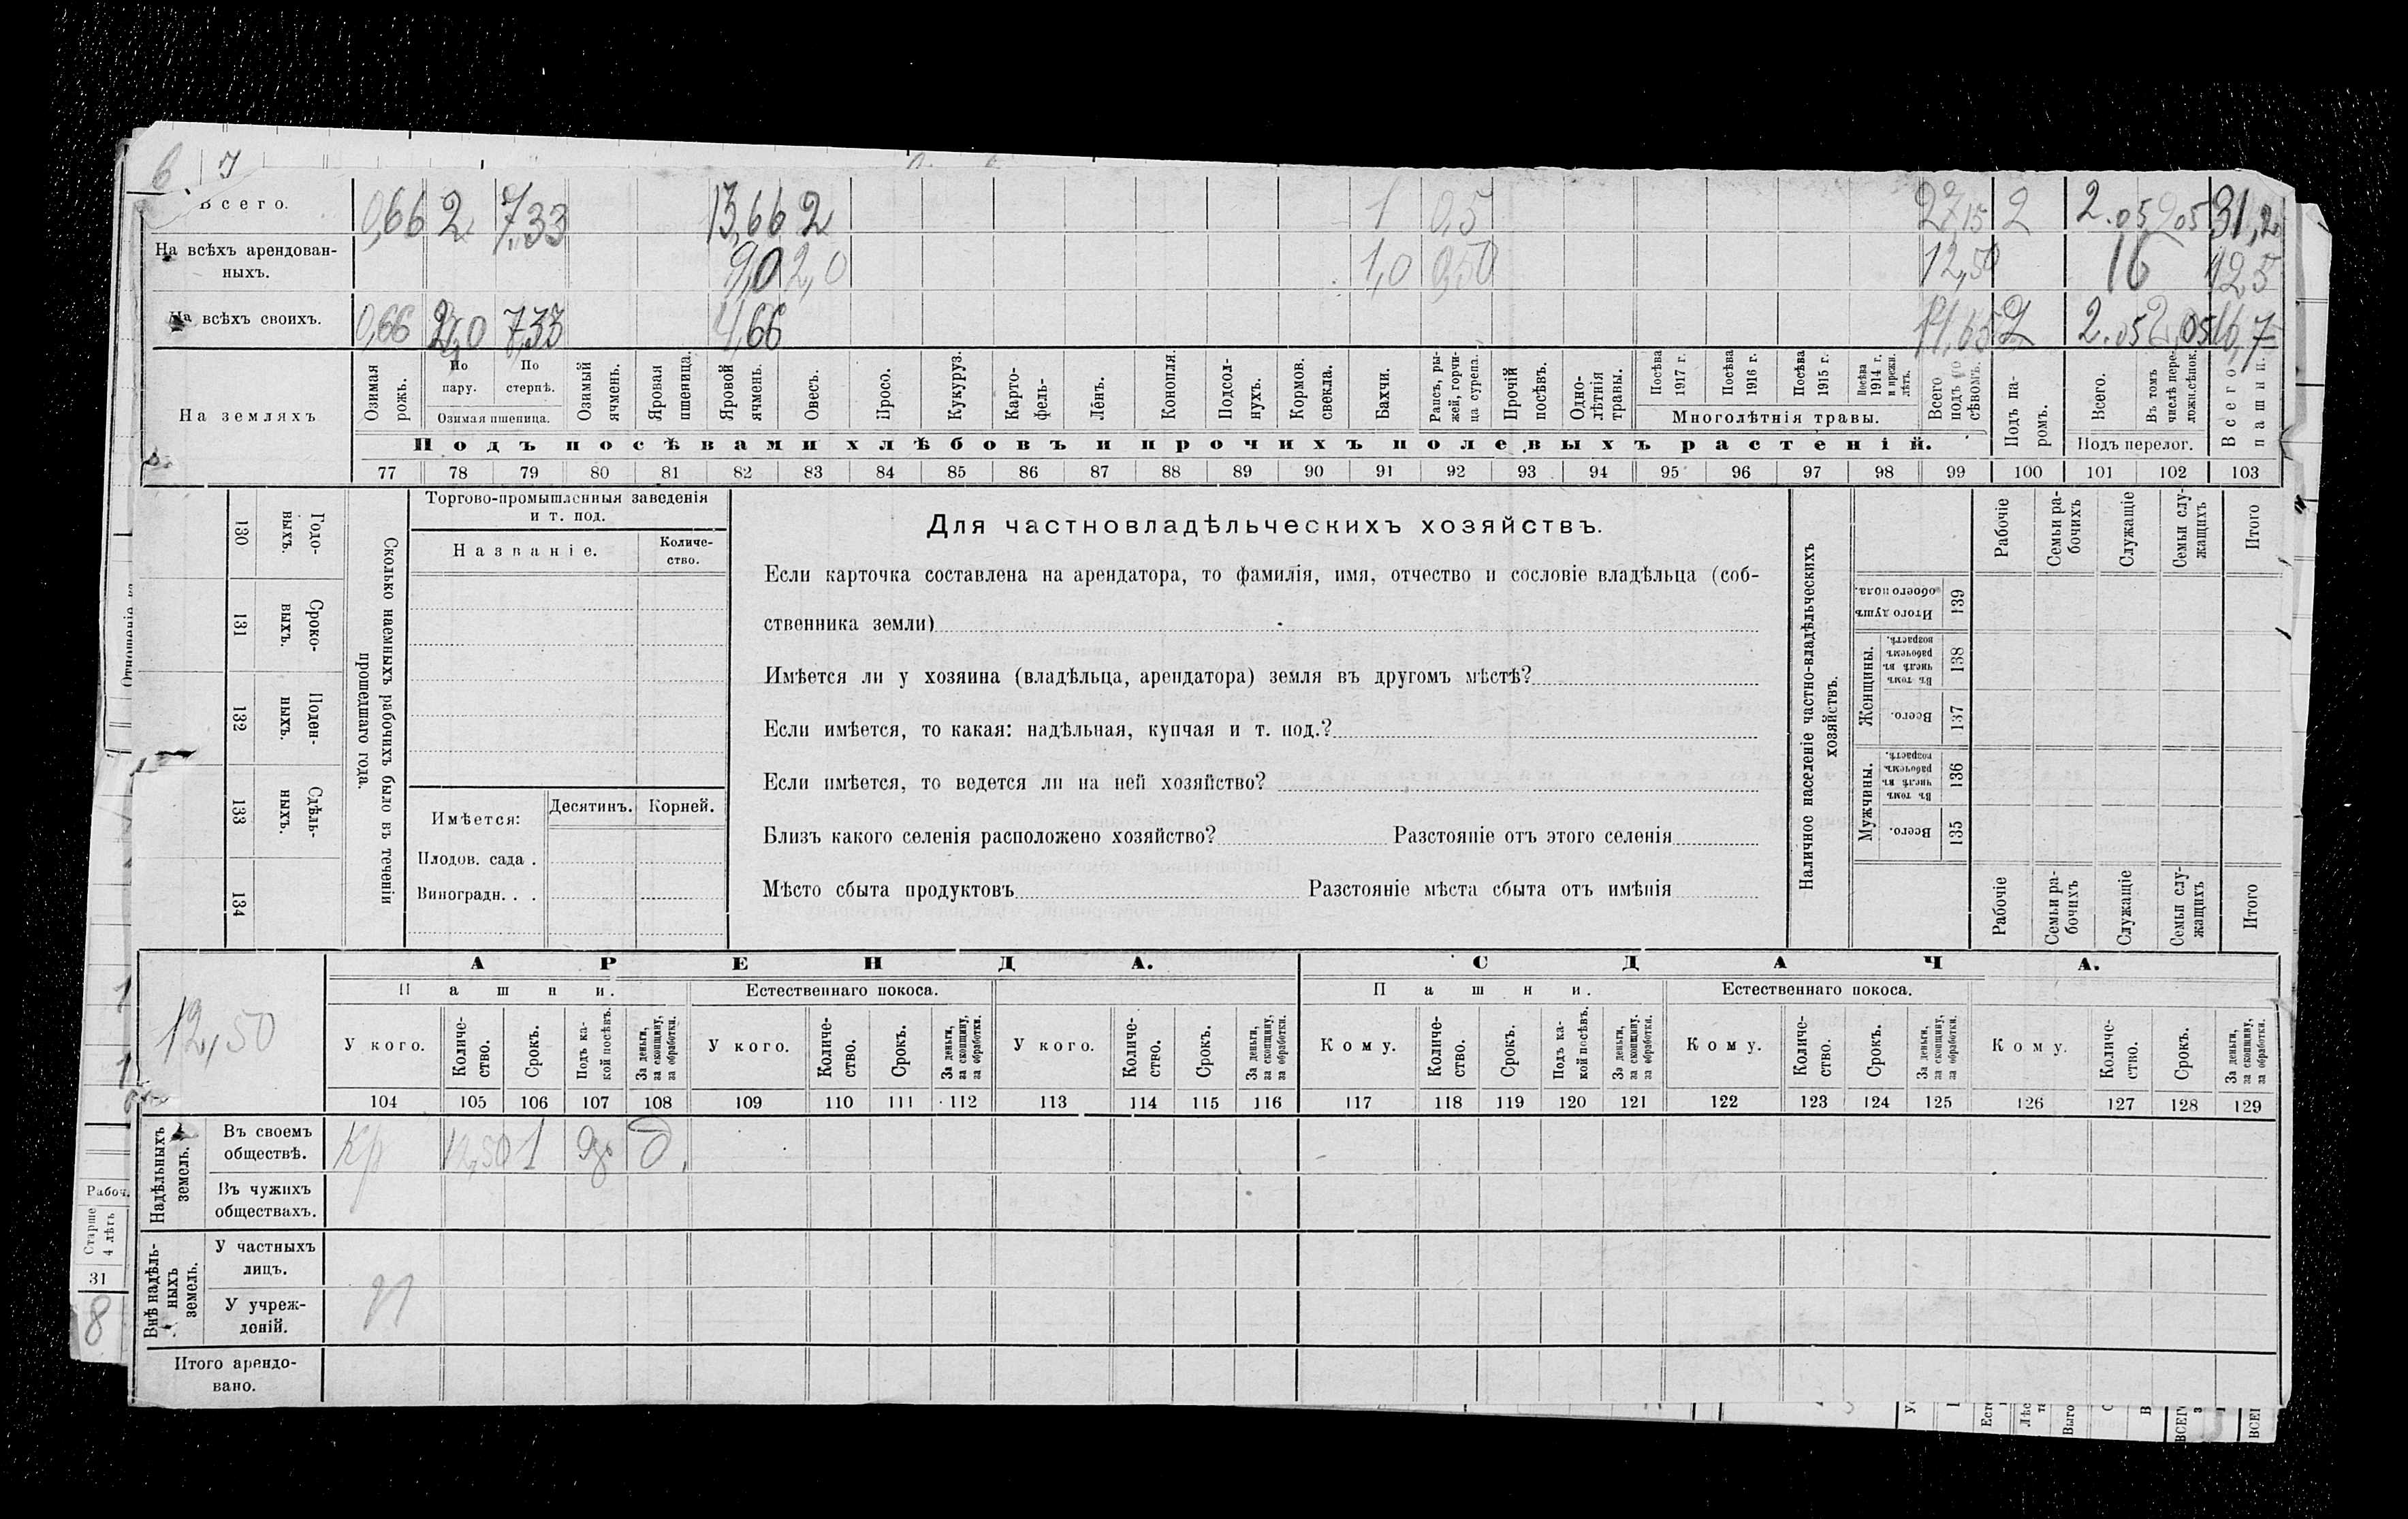 6. 7
Всего. 0,66 2 7,33 13,66 2 1 0,5 27,15 2 2.05 2,05 31,2
На всѣхъ арендован-
ныхъ. 9,0 2,0 1,0 0,50 12,50 16 12,5
На всѣхъ своихъ. 0,66 2,0 7,33 4,66 14,65 2 2.05 2,05 16,7
На земляхъ
Озимая рожь.
По пару.
По стернѣ.
Озимая пшеница.
Озимый ячмень.
Яровая пшеница.
Яровой ячмень.
Овесъ.
Просо.
Кукуруз.
Карто-
фель-
Лёнъ.
Конопля.
Подсол-
нухъ.
Кормов.
свекла.
Бахчи.
Рапсъ, ры-
жей, горчи-
ца сурепа.
Прочій
посѣвъ.
Одно-
лѣтнія
травы.
Посѣва
1917 г.
Посѣва
1916 г.
Посѣва
1915 г.
Посѣва
1914 г.
и прежн.
лѣтъ.
Многолѣтнія травы.
Всего
подъ по
сѣвомъ.
Подъ па-
ромъ.
Всего.
Въ томъ
числѣ пере-
ложн.сѣнок.
Подъ перелог.
Всего
пашни.
Подъ посѣвами хлѣбовъ и прочихъ полевыхъ растеній.
77 78 79 80 81 82 83 84 85 86 87 88 89 90 91 92 93 94 95 96 97 98 99 100 101 102 103
130 Годо-
выхъ.
131 Сроко-
выхъ.
132 Поден-
ныхъ.
133 Сдѣль-
ныхъ.
134
Сколько наемныхъ рабочихъ было въ теченіи
прошедшаго года.
Торгово-промышленныя заведенія
и т. под.
Названіе.
Количе-
ство.
Имѣется:
Десятинъ.
Корней.
Плодов. сада .
Виноградн. . .
Для частновладѣльческихъ хозяйствъ.
Если карточка составлена на арендатора, то фамилія, имя, отчество и сословіе владѣльца (соб-
ственника земли)
Имѣется ли у хозяина (владѣльца, арендатора) земля въ другомъ мѣстѣ?
Если имѣется, то какая: надѣльная, купчая и т. под.?
Если имѣется, то ведется ли на ней хозяйство?
Близъ какого селенія расположено хозяйство? Разстояніе отъ этого селенія
Мѣсто сбыта продуктовъ Разстояніе мѣста сбыта отъ имѣнія
Наличное населеніе частно-владѣльческихъ
хозяйствъ.
Рабочіе
Семьи ра-
бочихъ
Служащіе
Семьи слу-
жащихъ
Итого
Итого душъ
обоего пола.
139
Женщины.
Въ томъ
числѣ въ
рабочемъ
возрастѣ.
138
Всего.
137
Мужчины.
Въ томъ
числѣ въ
рабочемъ
возрастѣ.
136
Всего.
135
Рабочіе
Семьи ра-
бочихъ
Служащіе
Семьи слу-
жащихъ
Итого
12,50
АРЕНДА. СДАЧА.
Пашни. Естественнаго покоса. Пашни. Естественнаго покоса.
У кого.
Количе-
ство.
Срокъ.
Подъ ка-
кой посѣвъ.
За деньги,
за скопщину,
за обработки.
У кого.
Количе-
ство.
Срокъ.
За деньги,
за скопщину,
за обработки.
У кого.
Количе-
ство.
Срокъ.
За деньги,
за скопщину,
за обработки.
Кому.
Количе-
ство.
Срокъ.
Подъ ка-
кой посѣвъ.
За деньги,
за скопщину.
за обработки.
Кому.
Количе-
ство.
Срокъ.
За деньги,
за скопщину,
за обработки.
Кому.
Количе-
ство.
Срокъ.
За деньги,
за скопщину,
за обработки.
104 105 106 107 108 109 110 111 112 113 114 115 116 117 118 119 120 121 122 123 124 125 126 127 128 129
Надѣльныхъ
земель.
Въ своемъ
обществѣ. Кр 12,50 1 д.
Въ чужихъ
обществахъ.
Внѣ надѣль-
ныхъ
земель.
У частныхъ
лицъ.
У учреж-
деній.
Итого арендо-
вано.
Рабоч.
Старше
4 лѣтъ
31
8